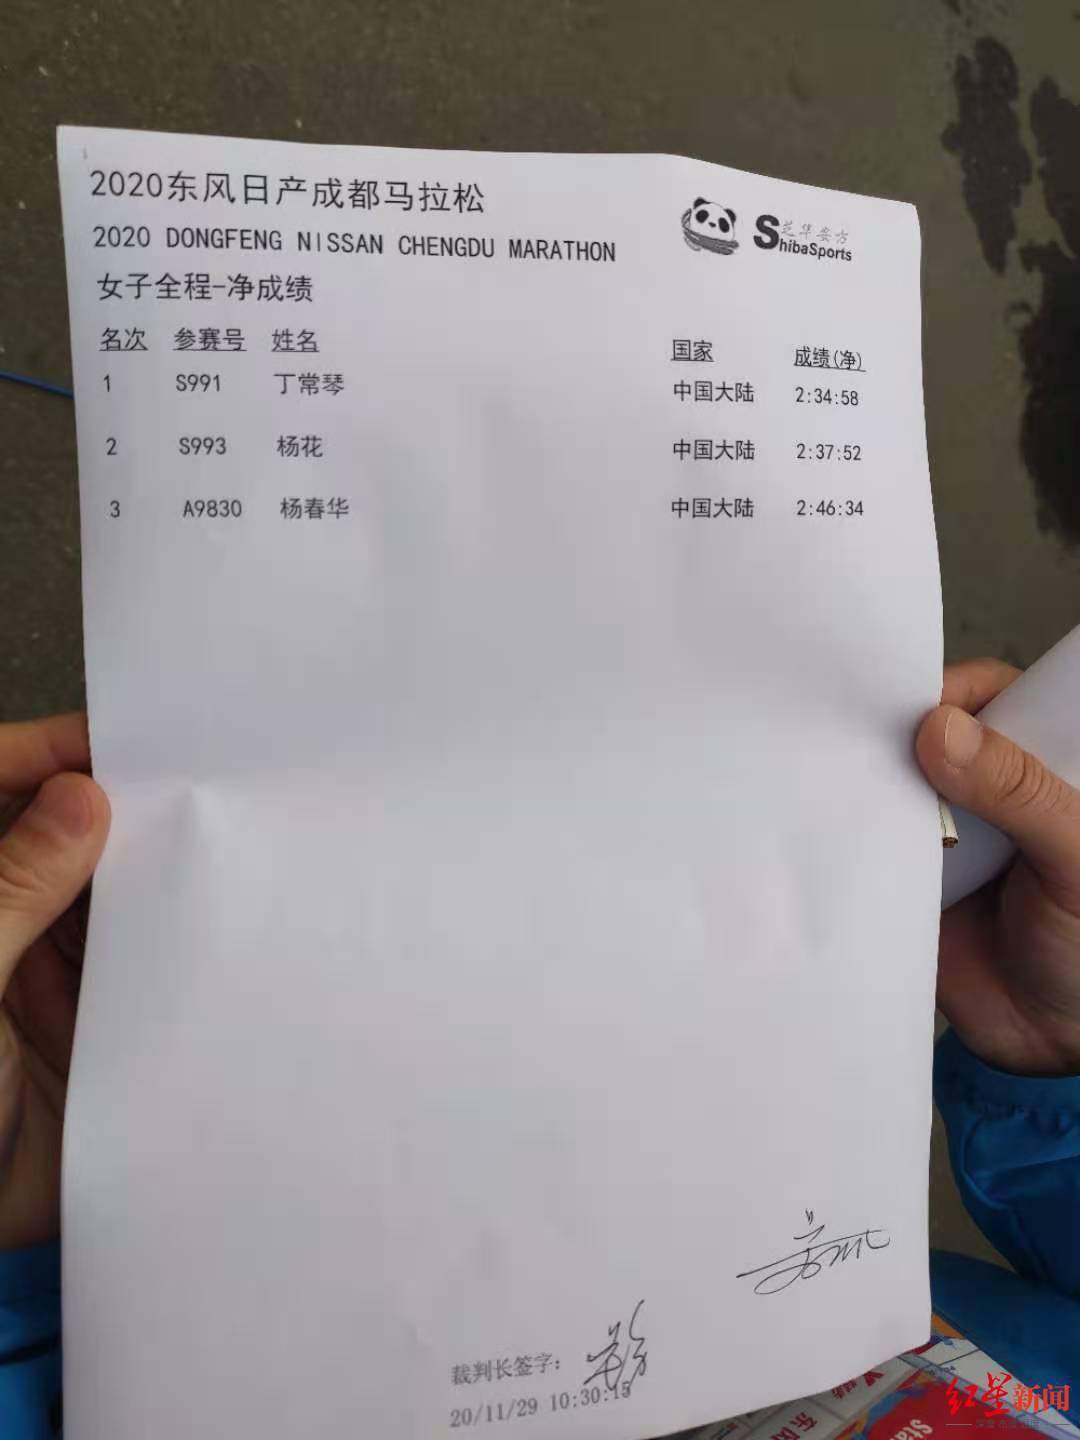 2020东风日产成都马拉松
2020 DONGFENG NISSAN CHENGDU MARATHON
芝华安方
ShibaSports
女子全程-净成绩
名次 参赛号 姓名 国家 成绩(净)
1 S991 丁常琴 中国大陆 2:34:58
2 S993 杨花 中国大陆 2:37:52
3 A9830 杨春华 中国大陆 2:46:34
裁判长签字:
20/11/29 10:30:15
红星新闻